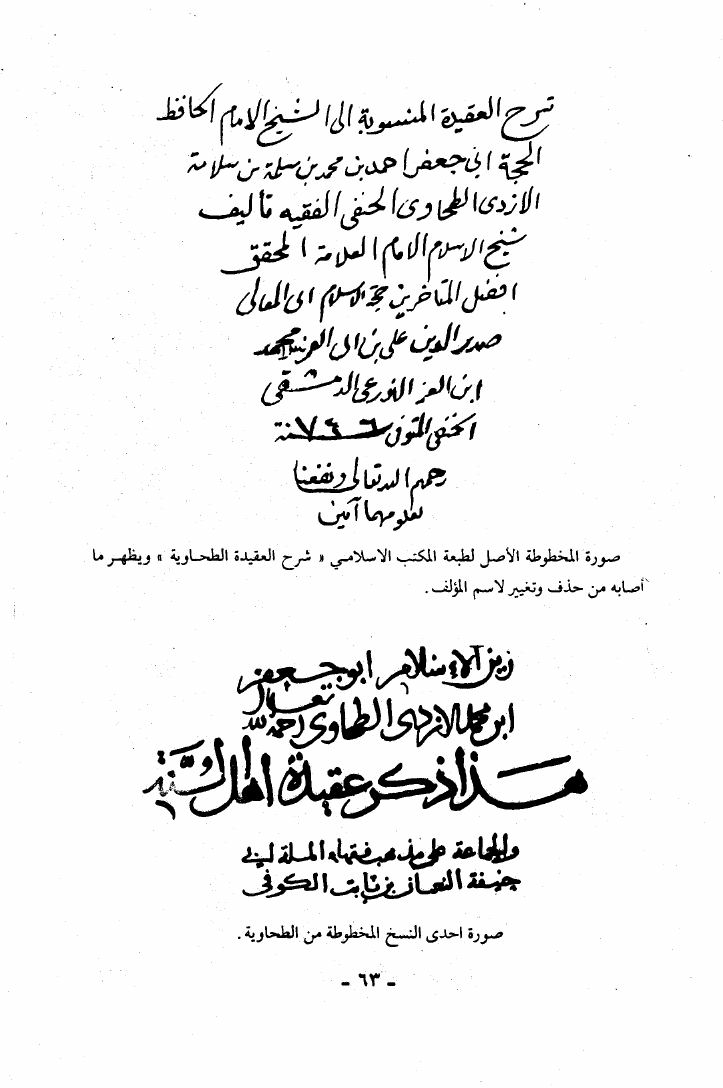 شرح العقيدة المنسوبة الى الشيخ الامام الحافظ
الحجة ابى جعفر احمد بن محمد بن سلمة بن سلامة
الازدى الطحاوى الحنفى الفقيه تأليف
شيخ الاسلام الامام العلامة المحقق
افضل المتاخرين حجة الاسلام ابى المعالى
صدر الدين على بن ابى العز محمد
ابن العز الاذرعى الدمشقى
الحنفى المتوفى سنة ٧٤٦
رحمهم الله تعالى ونفعنا
بعلومهما آمين
صورة المخطوطة الأصل لطبعة المكتب الاسلامي « شرح العقيدة الطحاوية » ويظهر ما
أصابه من حذف وتغيير لاسم المؤلف .
زين الاسلام ابو جعفر
ابن محمد الازدى الطحاوى رحمه الله تعالى
هذا ذكر عقيدة اهل السنة
والجماعة على مذهب فقهاء الملة ابى
حنيفة النعمان بن ثابت الكوفى
صورة احدى النسخ المخطوطة من الطحاوية .
- ٦٣ -